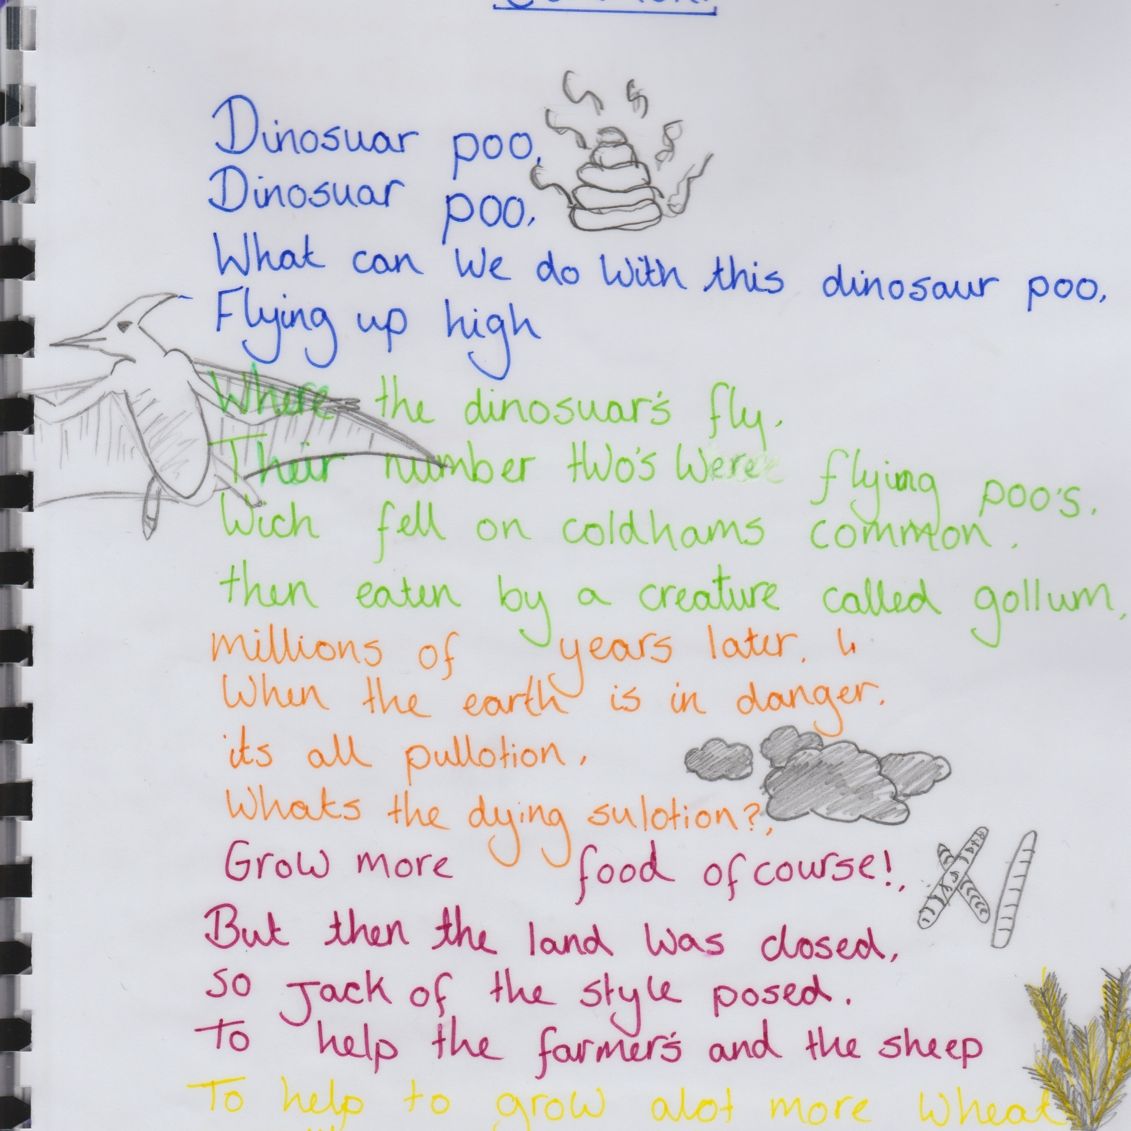 Dinosuar poo,
Dinosuar poo,
What can we do with this dinosaur poo,
Flying up high
Where the dinosuar's fly,
Their number two's were flying poo's,
Wich fell on coldhams common,
then eaten by a creature called gollum,
millions of years later,
When the earth is in danger,
its all pullotion,
Whats the dying sulotion?,
Grow more food of course!,
But then the land was closed,
so Jack of the style posed.
To help the farmer's and the sheep
To help to grow alot more wheat